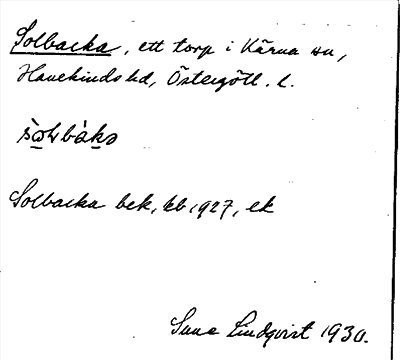 Solbacka, ett torp i Kärna sn,
Hanekinds hd, Östergötl. l.
Solbacka bek, kb 1927, ek
Sune Lindqvist 1930.